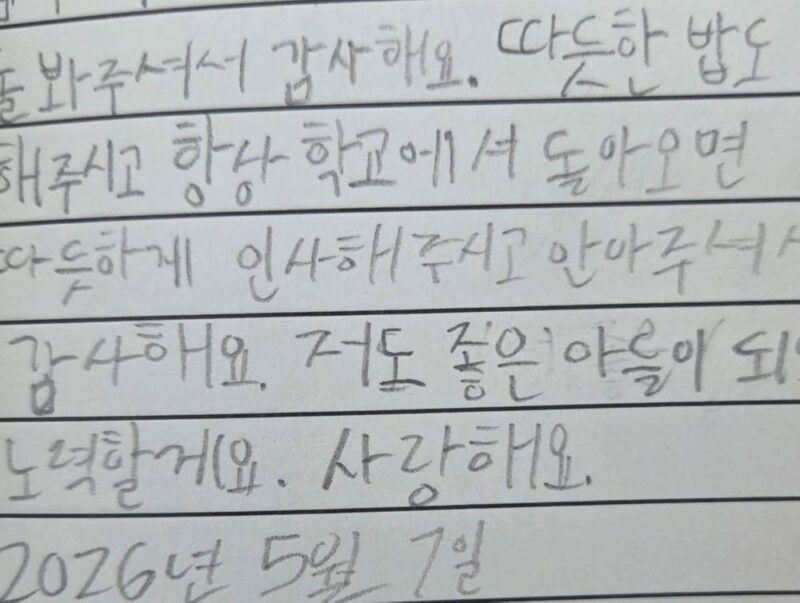 봐주셔서 감사해요. 따듯한 밥도
해주시고 항상 학교에서 돌아오면
따듯하게 인사해주시고 안아주셔서
감사해요. 저도 좋은 아들이
노력할게요. 사랑해요.
2026년 5월 7일